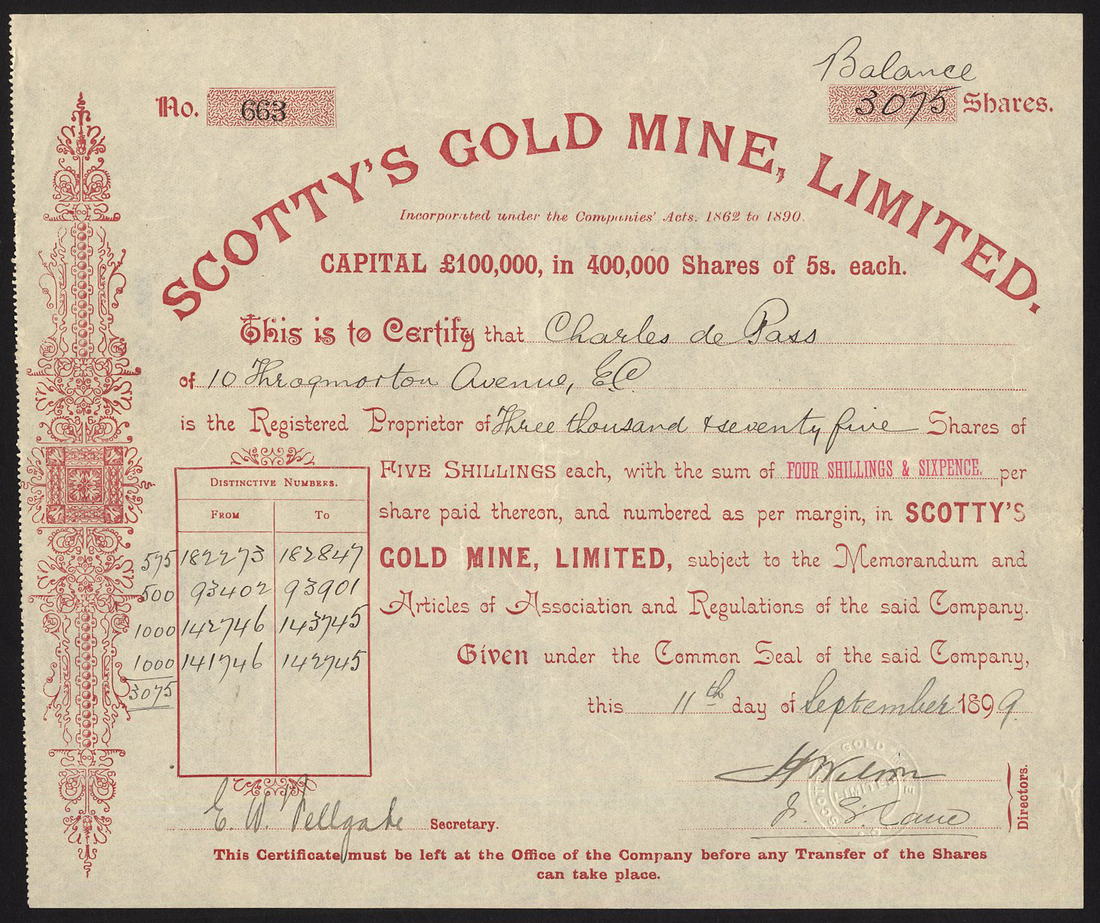 Balance
No. 663
3075 Shares.
SCOTTY'S GOLD MINE, LIMITED.
Incorporated under the Companies' Acts. 1862 to 1890.
CAPITAL £100,000, in 400,000 Shares of 5s. each.
This is to Certify that Charles de Pass
of 10 Throgmorton Avenue, EC
is the Registered Proprietor of Three thousand & seventy five Shares of
FIVE SHILLINGS each, with the sum of FOUR SHILLINGS & SIXPENCE. per
share paid thereon, and numbered as per margin, in SCOTTY'S
GOLD MINE, LIMITED, subject to the Memorandum and
Articles of Association and Regulations of the said Company.
Given under the Common Seal of the said Company,
this 11th day of September 1899.
DISTINCTIVE NUMBERS.
FROM TO
575 182273 182847
500 93402 93901
1000 142746 143745
1000 141746 142745
3075
H Wilson
Directors.
E. W. Fellgate Secretary.
This Certificate must be left at the Office of the Company before any Transfer of the Shares
can take place.